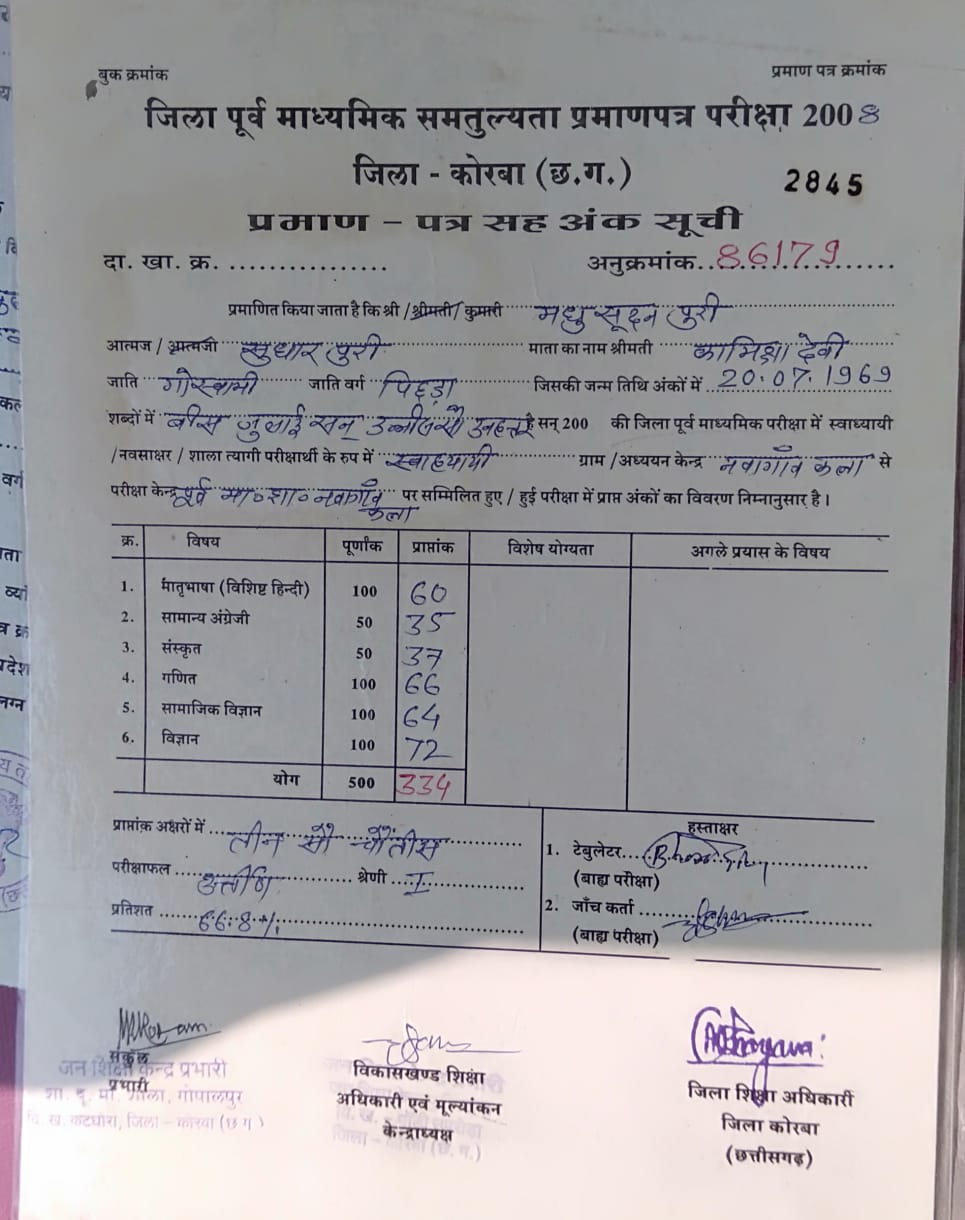 बुक क्रमांक प्रमाण पत्र क्रमांक
जिला पूर्व माध्यमिक समतुल्यता प्रमाणपत्र परीक्षा 2008
जिला - कोरबा (छ.ग.) 2845
प्रमाण - पत्र सह अंक सूची
दा. खा. क्र. ................ अनुक्रमांक..86179......
प्रमाणित किया जाता है कि श्री / श्रीमती / कुमारी मधुसूदन पुरी
आत्मज / आत्मजा सुधार पुरी माता का नाम श्रीमती कामिक्षा देवी
जाति गोस्वामी जाति वर्ग पिछड़ा जिसकी जन्म तिथि अंकों में 20.07.1969
शब्दों में बीस जुलाई सन् उन्नीस सौ उनहत्तर है सन् 200 की जिला पूर्व माध्यमिक परीक्षा में स्वाध्यायी
/नवसाक्षर / शाला त्यागी परीक्षार्थी के रुप में स्वाध्यायी ग्राम / अध्ययन केन्द्र नवागाँव कला से
परीक्षा केन्द्र पूर्व मा० शा० नवागाँव कला पर सम्मिलित हुए / हुई परीक्षा में प्राप्त अंकों का विवरण निम्नानुसार है।
क्र. विषय पूर्णांक प्राप्तांक विशेष योग्यता अगले प्रयास के विषय
1. मातृभाषा (विशिष्ट हिन्दी) 100 60
2. सामान्य अंग्रेजी 50 35
3. संस्कृत 50 37
4. गणित 100 66
5. सामाजिक विज्ञान 100 64
6. विज्ञान 100 72
योग 500 334
प्राप्तांक अक्षरों में तीन सौ चौंतीस
परीक्षाफल उत्तीर्ण श्रेणी I
प्रतिशत 66.8%
हस्ताक्षर
1. टेबुलेटर
(बाह्य परीक्षा)
2. जाँच कर्ता
(बाह्य परीक्षा)
संकुल
प्रभारी
जन शिक्षा केन्द्र प्रभारी
शा. पू. मा. शाला, गोपालपुर
वि. ख. कटघोरा, जिला - कोरबा (छ ग)
विकासखण्ड शिक्षा
अधिकारी एवं मूल्यांकन
केन्द्राध्यक्ष
जिला शिक्षा अधिकारी
जिला कोरबा
(छत्तीसगढ़)